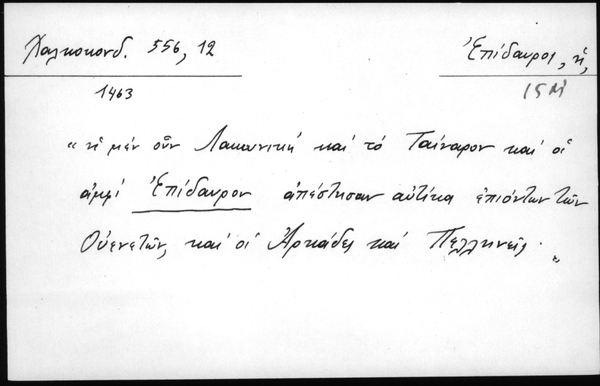 Χαλκοκονδ. 556, 12
Ἐπίδαυρος, ἡ,
1463
15 Μ
“ἡ μὲν οὖν Λακωνικὴ καὶ τὸ Ταίναρον καὶ οἱ
ἀμφὶ Ἐπίδαυρον ἀπέστησαν αὐτίκα ἐπιόντων τῶν
Οὐενετῶν, καὶ οἱ Ἀρκάδες καὶ Πελληνεῖς.„